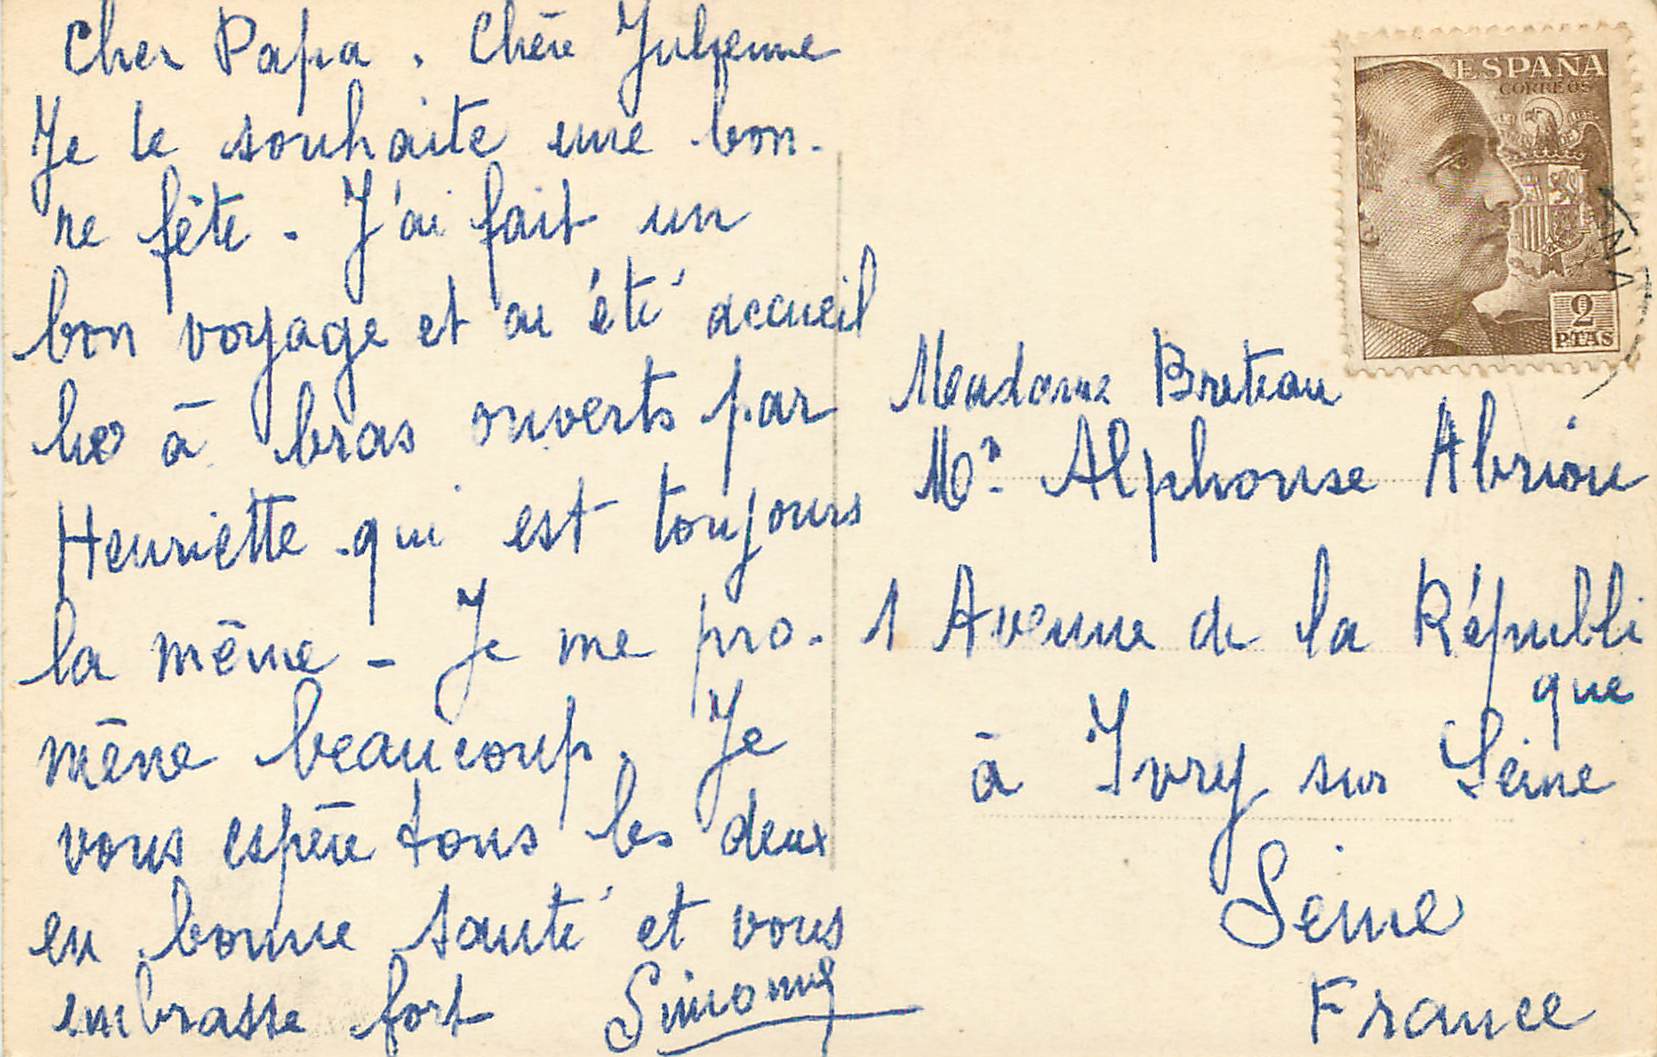 Cher Papa. Chère Julienne
Je te souhaite une bon-
ne fête. J'ai fait un
bon voyage et ai été accueil
lie à bras ouverts par
Henriette qui est toujours
la même - Je me pro-
mène beaucoup. Je
vous espère tous les deux
en bonne santé et vous
embrasse fort Simone
ESPAÑA
CORREOS
2
PTAS
Madame Breteau
Mr Alphonse Abriou
1 Avenue de la Républi
que
à Ivry sur Seine
Seine
France